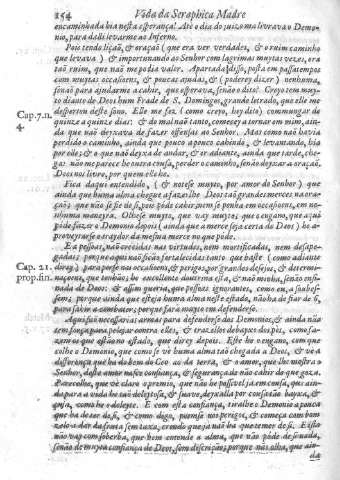 254 Vida da Seraphica Madre
encaminhada hia nesta esperança! Até o dia do juizo me livrava o Demo-
nio, para dalli levarme ao Inferno.
Pois tendo liçaõ, & oraçaõ ( que era ver verdades, & o ruim caminho
que levava ) & importunando ao Senhor com lagrimas muytas vezes, era
taõ ruim, que naõ me podia valer. Apartada disso, posta em passatempos
com muytas occasioens, & poucas ajudas, & ( poderey dizer ) nenhuma,
senaõ para ajudarme a cahir, que esperava, senaõ o dito? Creyo tem muy-
to diante de Deos hum Frade de S. Domingos, grande letrado, que elle me
despertou deste sono. Elle me fez ( como creyo, hey dito ) commungar de
Cap.7.n.
4.
quinze a quinze dias: & do mal naõ tanto, comecey a tornar em mim, ain-
da que naõ deyxava de fazer offensas ao Senhor. Mas como naõ havia
perdido o caminho, ainda que pouco a pouco cahindo, & levantando, hia
por elle; & o que naõ deyxa de andar, & ir adiante, ainda que tarde, che-
ga: naõ me parece he outra cousa, perder o caminho, senaõ deyxar a oraçaõ.
Deos nos livre, por quem elle he.
Fica daqui entendido, ( & notese muyto, por amor do Senhor ) que
ainda que huma alma chegue a fazerlhe Deos taõ grandes merces na ora-
çaõ: que naõ se fie de si, pois póde cahir, nem se ponha em occasioens, em ne-
nhuma maneyra. Olhese muyto, que vay muyto: que o engano, que aqui
póde fazer o Demonio depois, ainda que a merce seja certa de Deos; he a-
proveytarse o traydor da mesma merce no que póde.
E a pessoas, naõ crecidas nas virtudes, nem mortificadas, nem desape-
gadas; porque aqui naõ ficaõ fortalecidas tanto que baste ( como adiante
Cap. 21.
prop.fin.
direy ) para porse nas occasioens, & perigos, por grandes desejos, & determi-
naçoens, que tenhaõ; he excellente doutrina esta, & naõ minha, senaõ ensi-
nada de Deos: & assim queria, que pessoas ignorantes, como eu, a soubes-
sem; porque ainda que esteja huma alma neste estado, naõ ha de fiar de si,
para sahir a combater; porque fará muyto em defenderse.
Aqui saõ necessarias armas para defenderse dos Demonios, & ainda naõ
tem força para pelejar contra elles, & trazellos debayxo dos pés, como fa-
zem os que estaõ no estado, que direy depois. Este he o engano, com que
colhe o Demonio, que como se vè huma alma taõ chegada a Deos, & vè a
differença que ha do bem do Ceo ao da terra, & o amor, que lhe mostra o
Senhor, deste amor nasce confiança, & segurança de naõ cahir do que goza.
Parecelhe, que vè claro o premio, que naõ he possivel já em cousa, que ain-
da para a vida he taõ deleytosa, & suave, deyxalla por cousa taõ bayxa, &
çuja, como he o deleyte. E com esta confiança, tiralhe o Demonio a pouca
que ha de ter de si, & como digo, poemse nos perigos, & começa com bom
zelo a dar da fruta sem taxa, crendo que já naõ ha que temer de si. E isto
naõ vay com soberba, que bem entende a alma, que naõ póde de si nada,
senaõ de muyta confiança de Deos, sem descriçaõ; porque naõ olha, que ain-
da